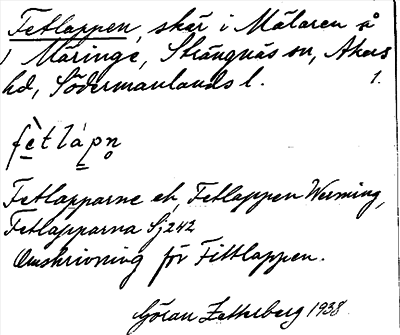 Fetlappen, skär i Mälaren å
1 Märinge, Strängnäs sn, Åkers
hd, Södermanlands l. 1.
fètlápn
Fetlapparne ek, Fetlappen Werming,
Fetlapparna Sj 242
Omskrivning för Fittlappen.
Göran Zetterberg 1938